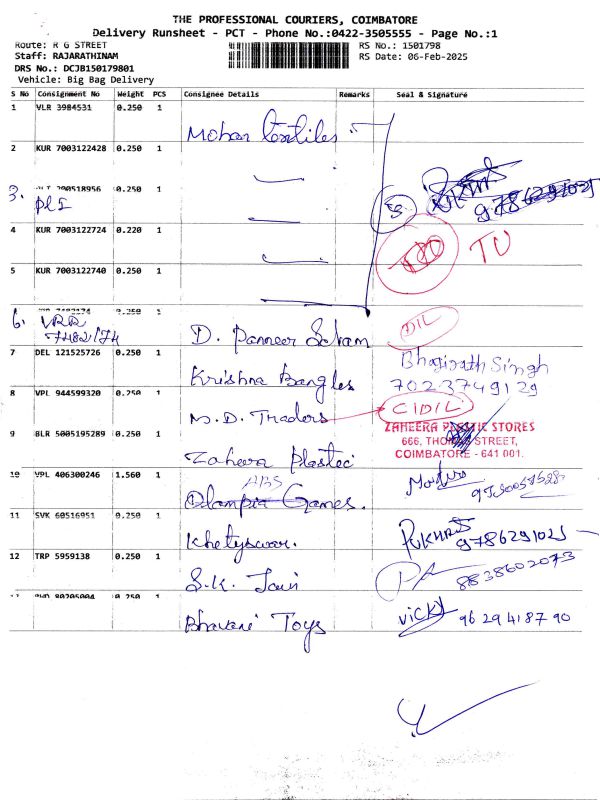 THE PROFESSIONAL COURIERS, COIMBATORE
Delivery Runsheet - PCT - Phone No.:0422-3505555 - Page No.:1
Route: R G STREET
RS No.: 1501798
Staff: RAJARATHINAM
RS Date: 06-Feb-2025
DRS No.: DCJB150179801
Vehicle: Big Bag Delivery
S No Consignment No Weight PCS Consignee Details Remarks Seal & Signature
1 VLR 3984531 0.250 1
Mohan textiles
2 KUR 7003122428 0.250 1
3. 390518956 0.250 1
4 KUR 7003122724 0.220 1
TU
5 KUR 7003122740 0.250 1
6. VRR 7482174 0.250 1
D. Panneer Selvam
DIL
7 DEL 121525726 0.250 1
Krishna Bangles
Bhagirath Singh
7023749129
8 VPL 944599320 0.250 1
M.D. Traders
CIDIL
9 BLR 5005195289 0.250 1
Zaheera Plastec
ZAHEERA PLASTIC STORES
666, THOMAS STREET,
COIMBATORE - 641 001.
10 VPL 406300246 1.560 1
ABS
Games.
11 SVK 60516951 0.250 1
Khetyswar.
PUKHRAJ
9786291021
12 TRP 5959138 0.250 1
S.K. Jain
8838602073
0.250 1
Bhavani Toys
VICKY
9629418790